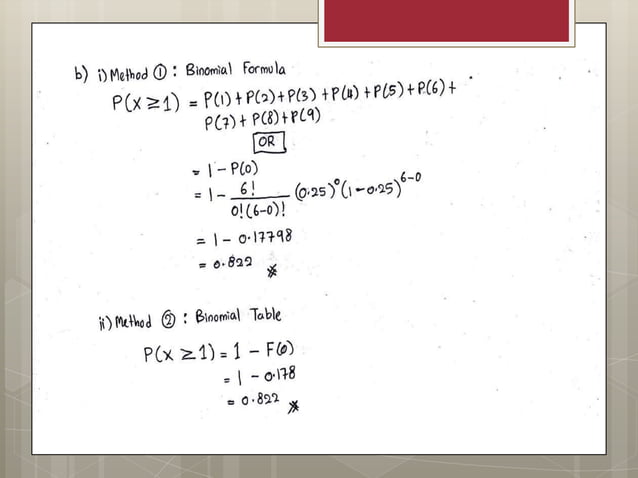 b) i) Method ① : Binomial Formula
P(X ≥ 1) = P(1) + P(2) + P(3) + P(4) + P(5) + P(6) +
P(7) + P(8) + P(9)
OR
= 1 - P(0)
= 1 - 6! / 0!(6-0)! (0.25)^0 (1-0.25)^6-0
= 1 - 0.17798
= 0.822
ii) Method ② : Binomial Table
P(X ≥ 1) = 1 - F(0)
= 1 - 0.178
= 0.822